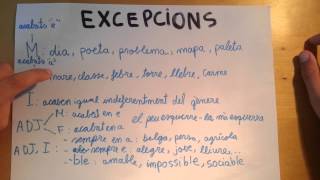 EXCEPCIONS
acabats "a"
M: dia, poeta, problema, mapa, paleta
acabats "e"
mare, classe, febre, torre, llebre, carne
I: acaben igual indeferentment del gènere
ADJ: M: acabat en e el peu esquerre - la mà esquerra
F: acabat en a
ADJ, I: - sempre en a: belga, persa, agrícola
- sempre e: alegre, jove, lliure...
- ble: amable, impossible, sociable